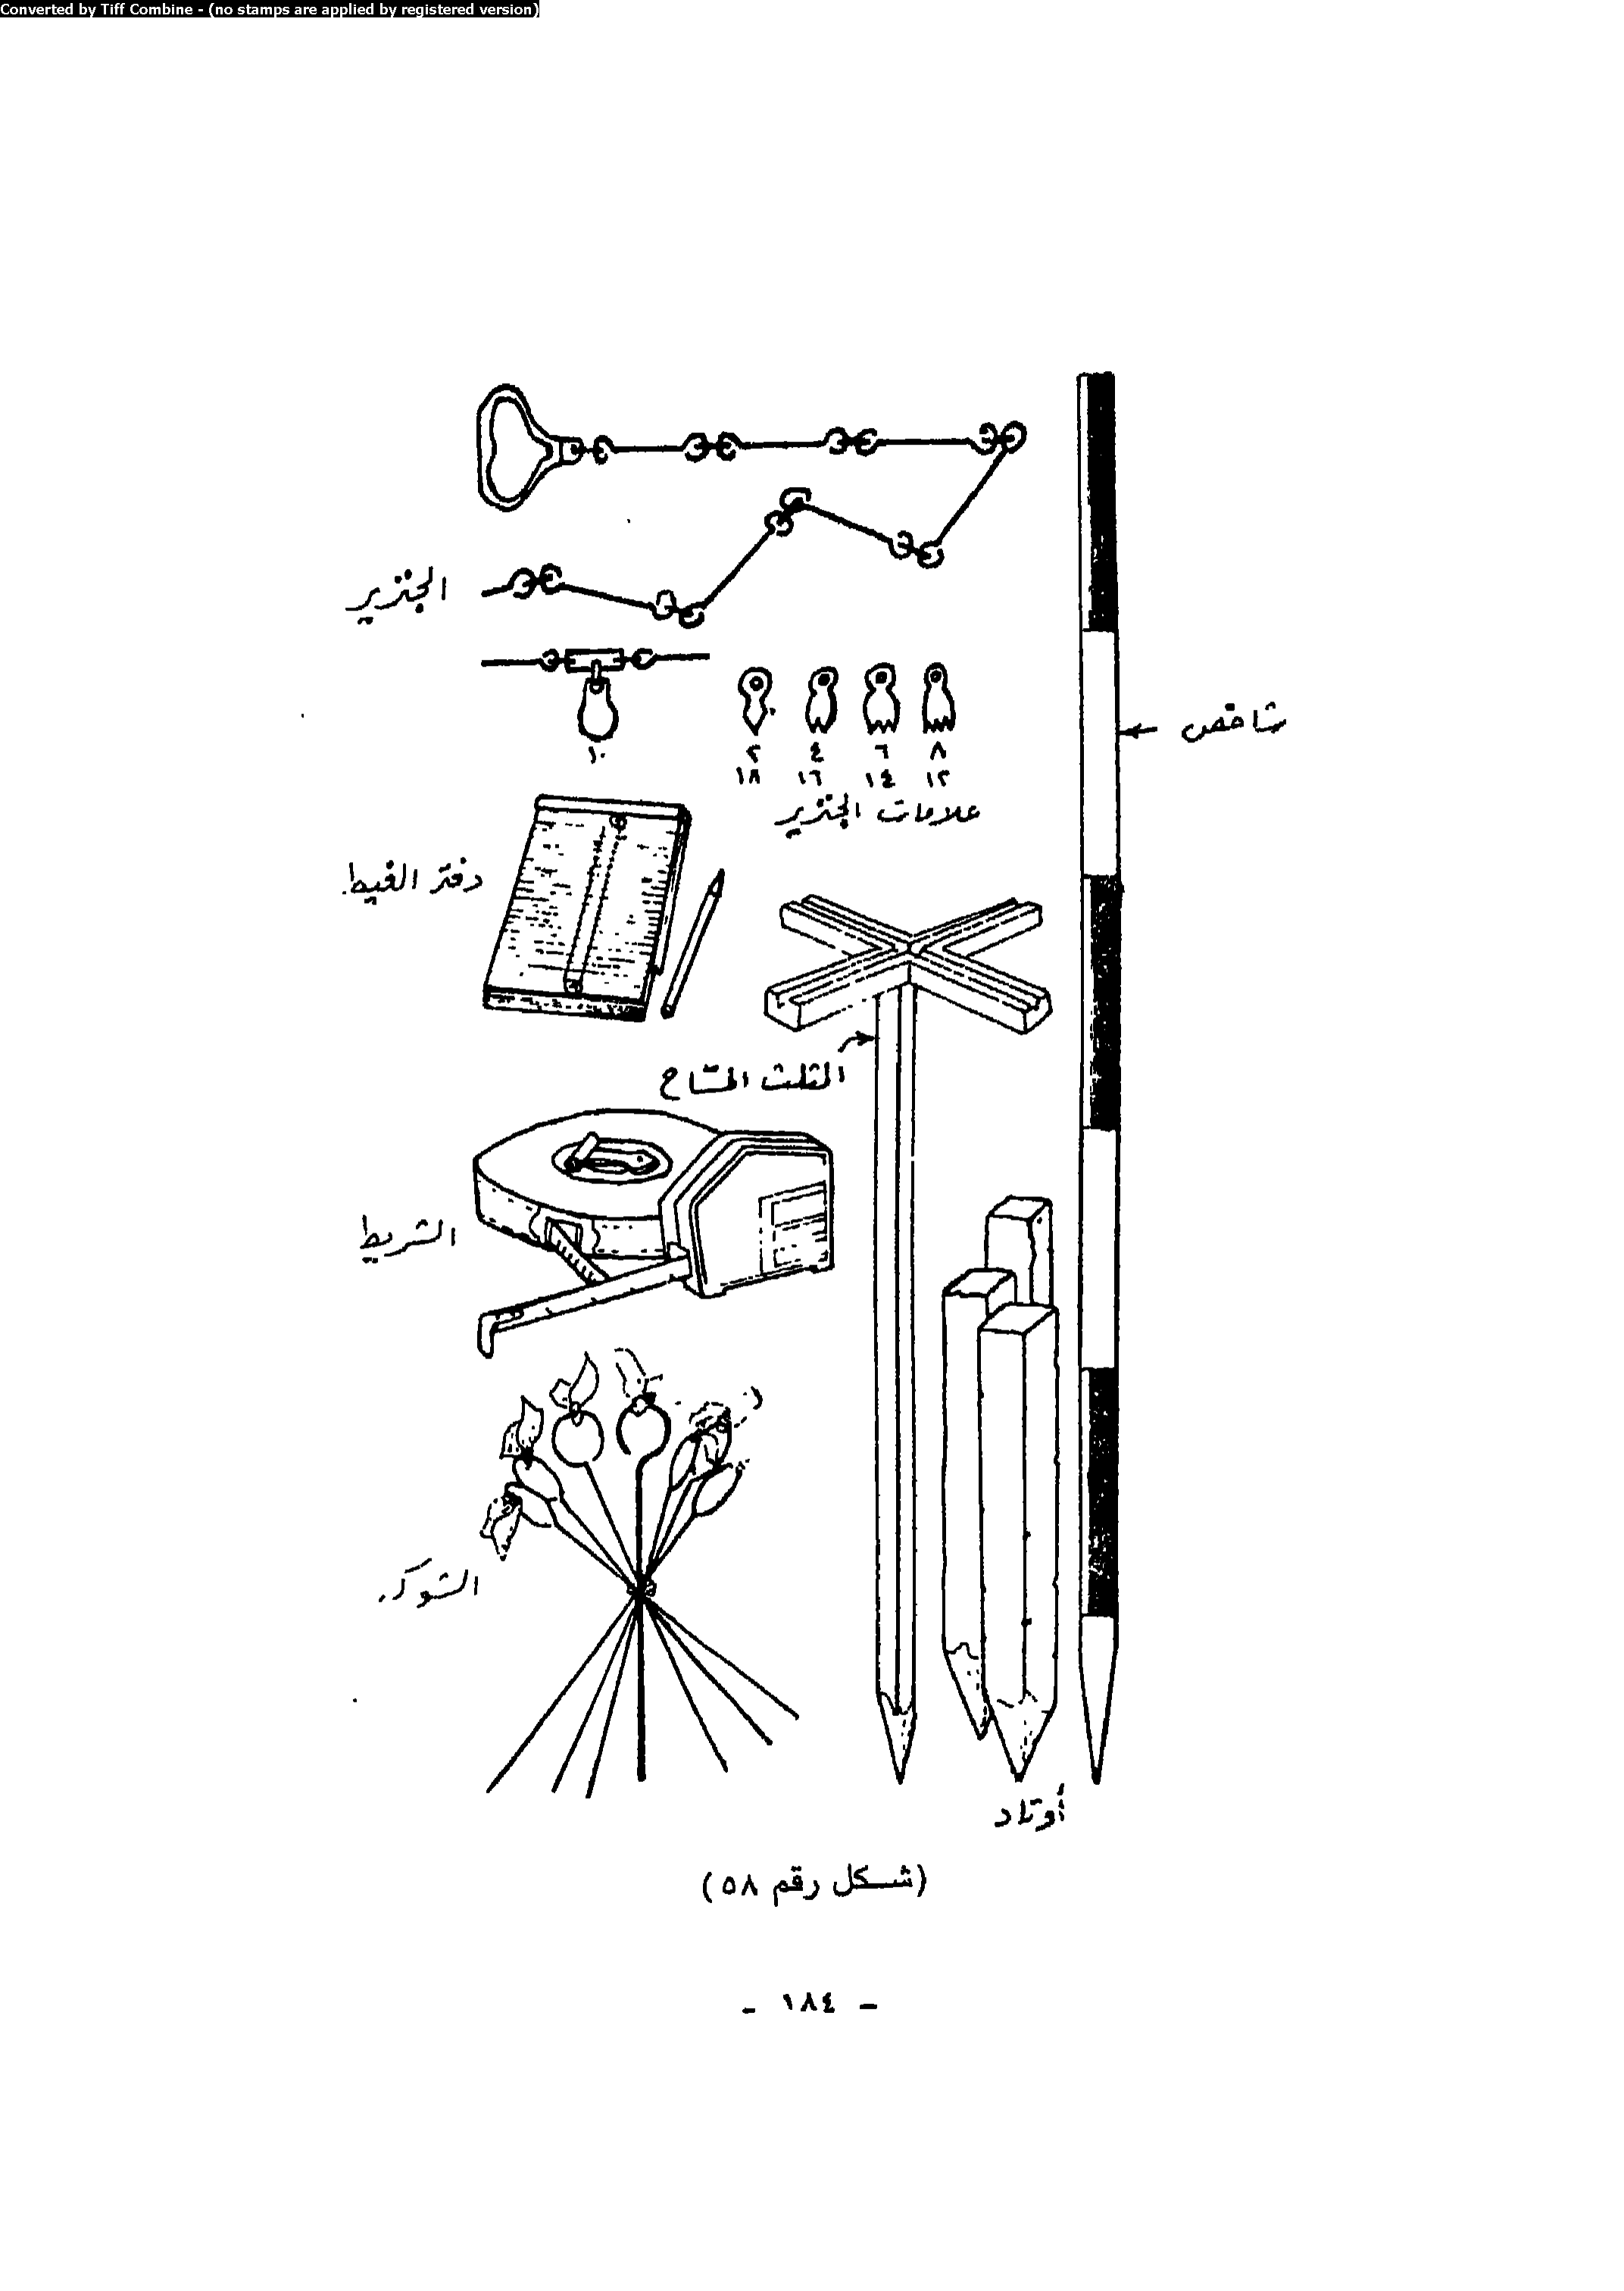 Converted by Tiff Combine - (no stamps are applied by registered version)
الجنزير
شاخص
١٠
٢ ٤ ٦ ٨
١٨ ١٦ ١٤ ١٢
علامات الجنزير
دفتر الغيط
المثلث المساح
الشريط
الشوك
أوتاد
(شكل رقم ٥٨)
- ١٨٤ -